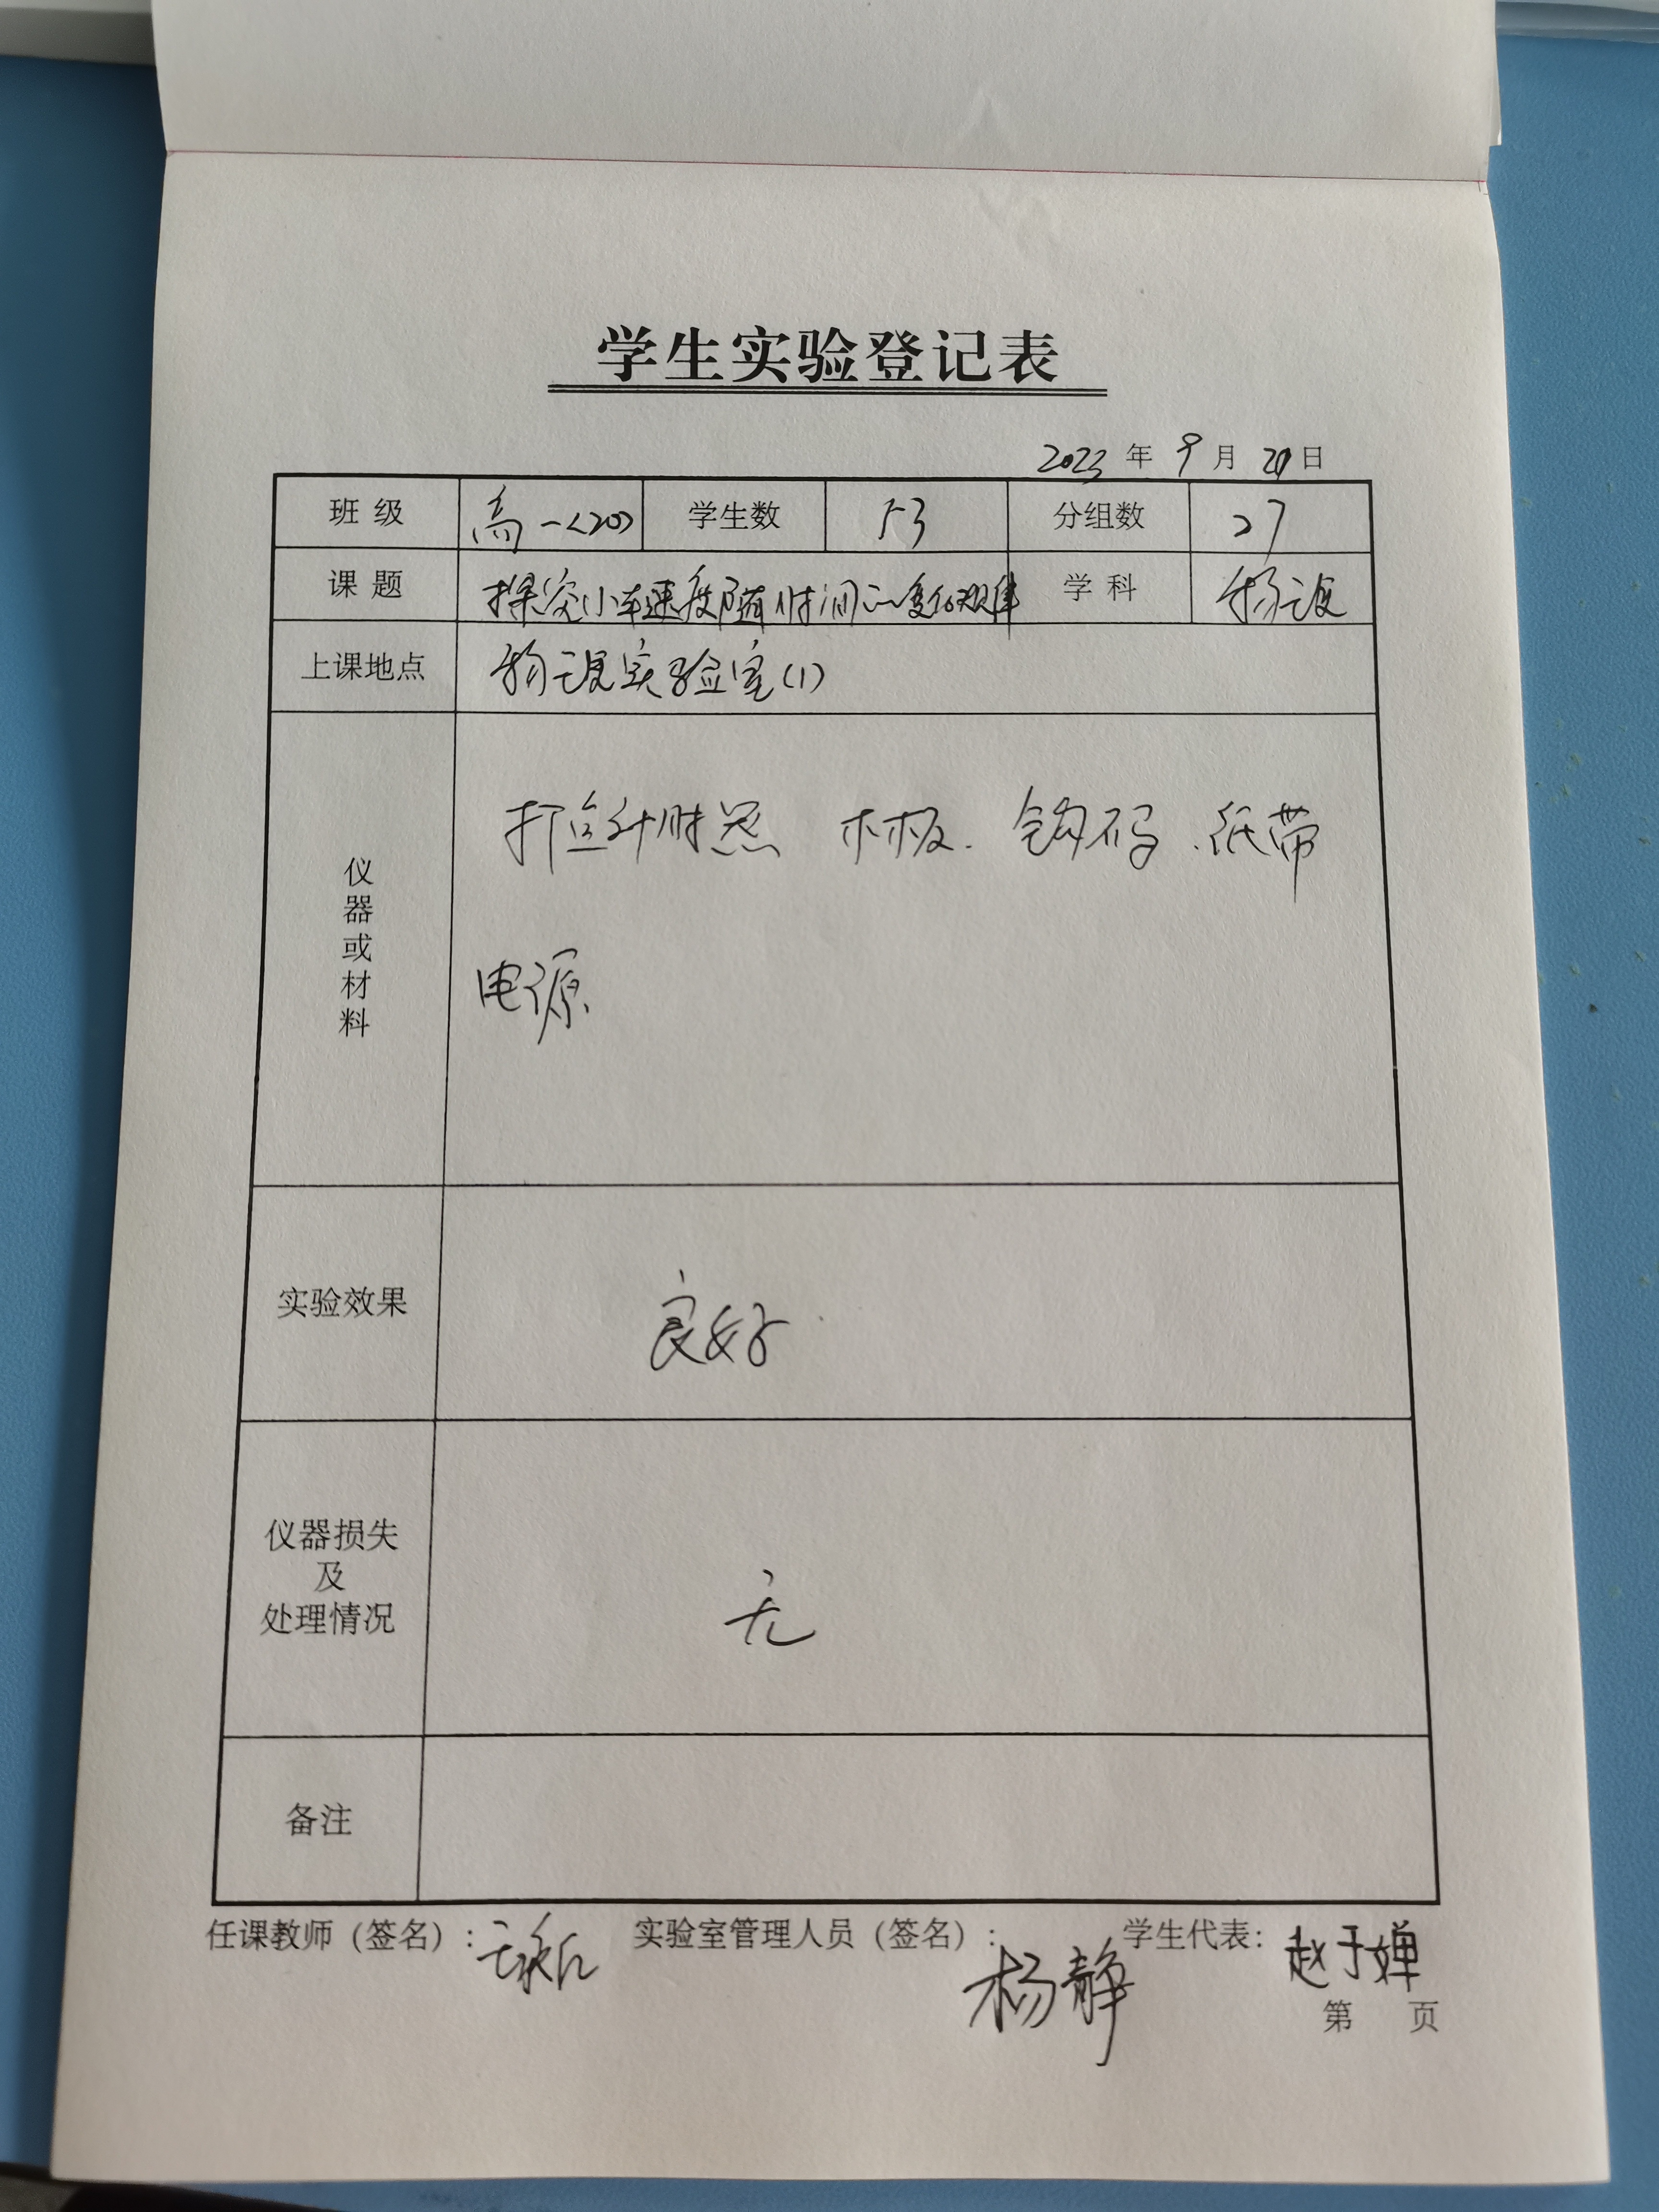 学生实验登记表
2023 年 9 月 20 日
班级 高一<20> 学生数 53 分组数 27
课题 探究小车速度随时间的变化规律 学科 物理
上课地点 物理实验室(1)
仪器或材料
打点计时器 木板. 钩码.纸带
电源
实验效果 良好.
仪器损失
及
处理情况
无
备注
任课教师（签名）: 实验室管理人员（签名）: 杨静 学生代表: 赵于婵
第 页